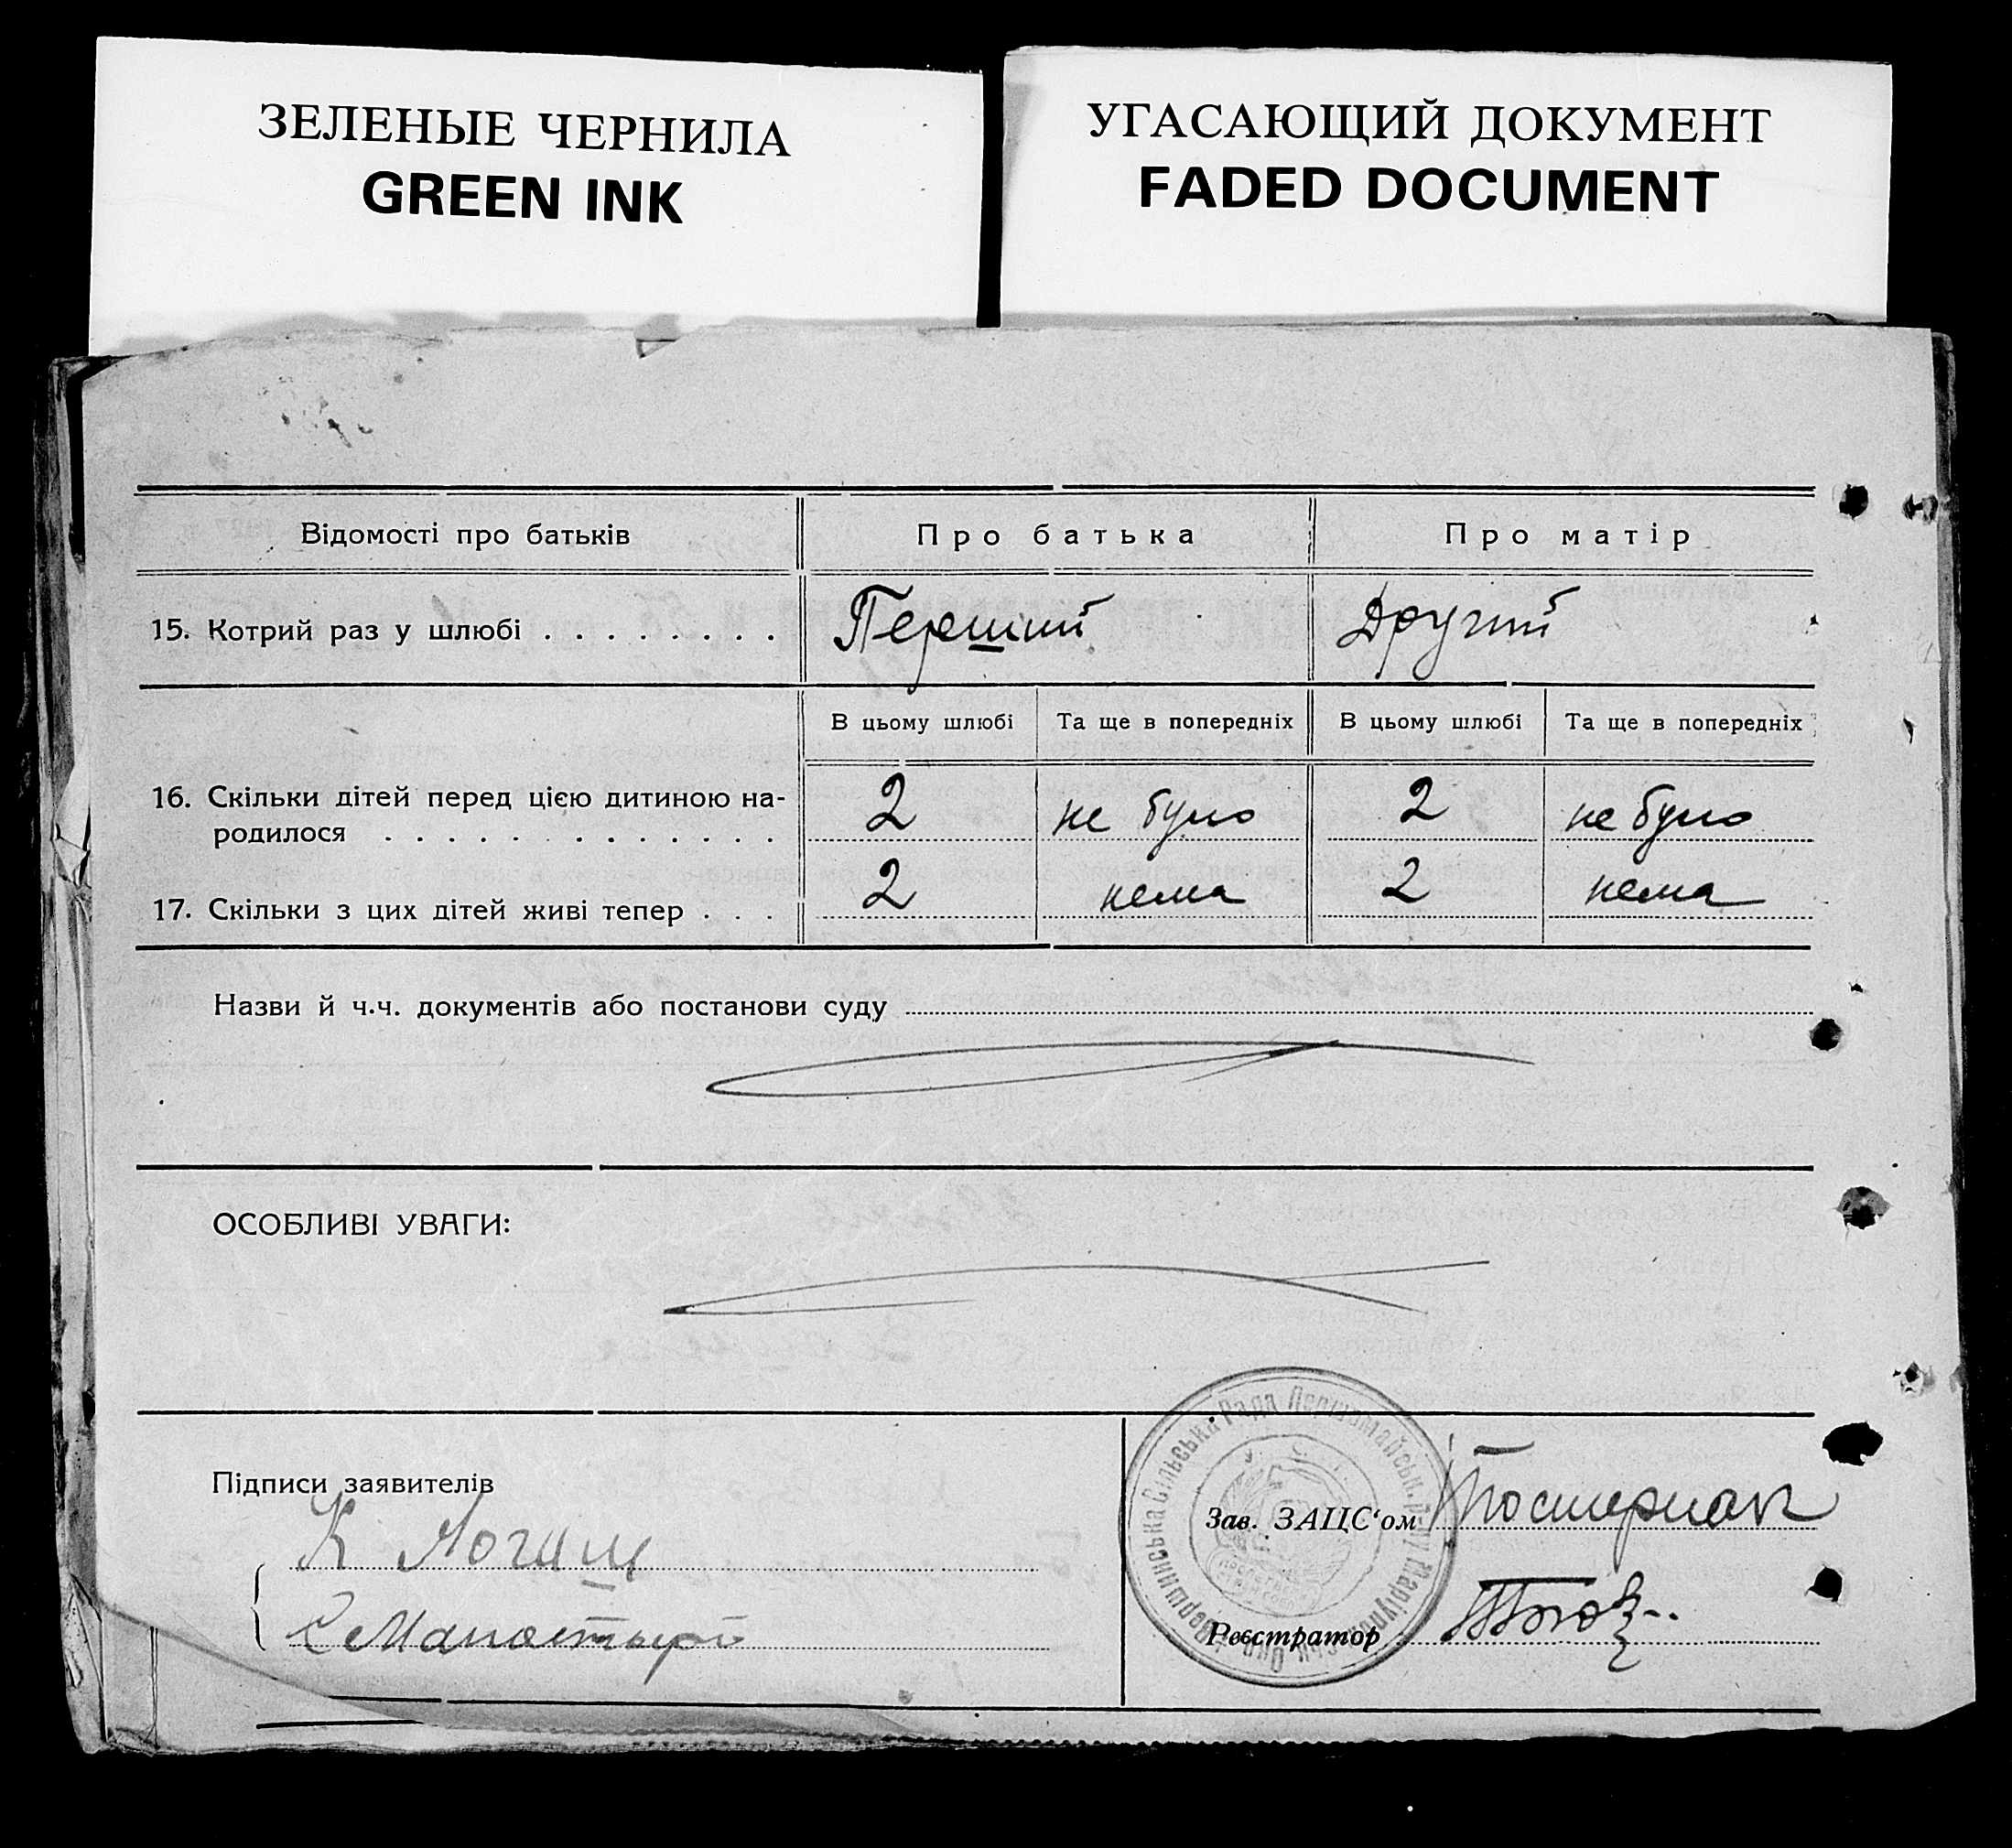 ЗЕЛЕНЫЕ ЧЕРНИЛА
GREEN INK
УГАСАЮЩИЙ ДОКУМЕНТ
FADED DOCUMENT
Відомості про батьків Про батька Про матір
15. Котрий раз у шлюбі . . . . . . . . Перший Другий
В цьому шлюбі Та ще в попередніх В цьому шлюбі Та ще в попередніх
16. Скільки дітей перед цією дитиною на-
родилося . . . . . . . . . . . . . 2 не було 2 не було
17. Скільки з цих дітей живі тепер . . . 2 нема 2 нема
Назви й ч.ч. документів або постанови суду
ОСОБЛИВІ УВАГИ:
Підписи заявителів
К
Зав. ЗАЦС'ом
Реєстратор
Сільська Рада Першомайськ.